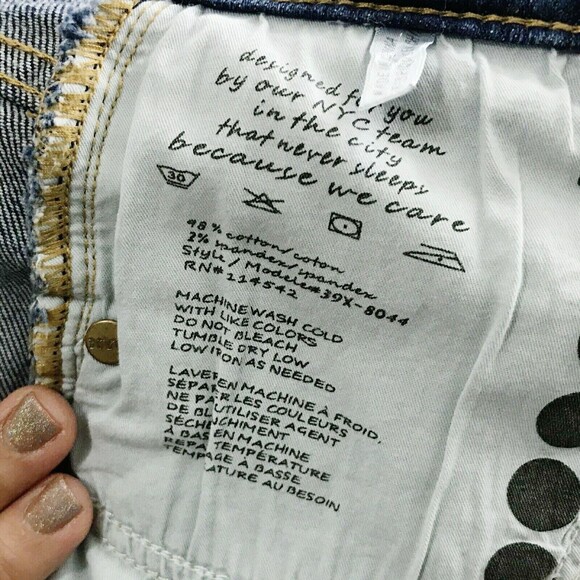 designed for you
by our NYC team
in the city
that never sleeps
because we care
30
98% cotton/coton
2% spandex/spandex
Style / Modele#39X-8044
RN# 114542
MACHINE WASH COLD
WITH LIKE COLORS
DO NOT BLEACH
TUMBLE DRY LOW
LOW IRON AS NEEDED
LAVER EN MACHINE À FROID,
SÉPAR
NE PAR LES COULEURS
DE BL UTILISER AGENT
SÉCHE CHIMENT
À BAS EN MACHINE
REPA TEMPÉRATURE
TEMPAGE A BASSE
ATURE AU BESOIN